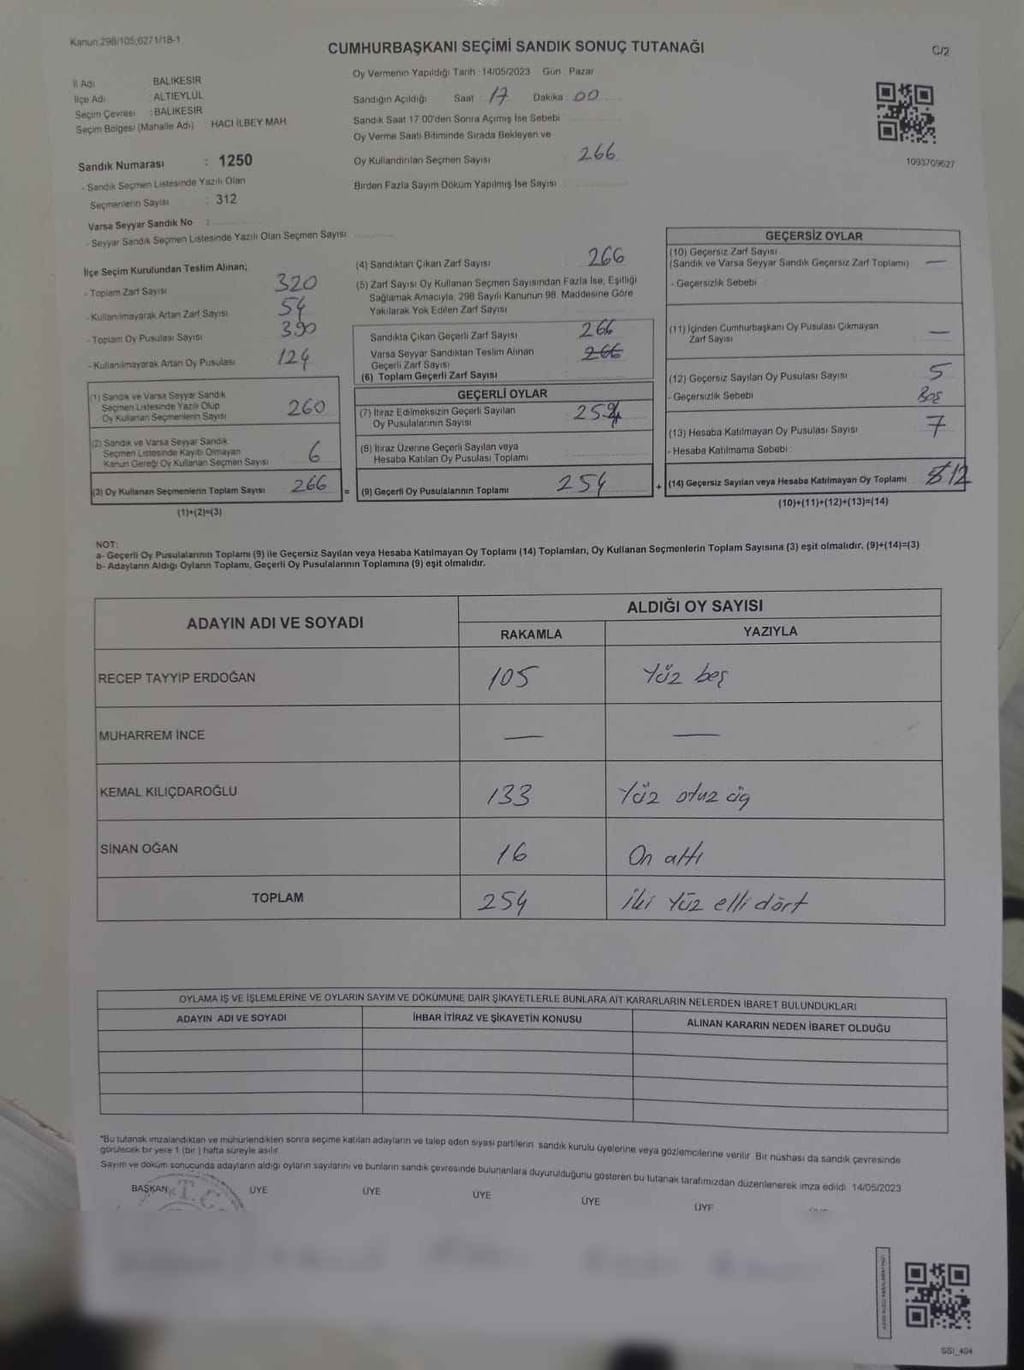 Kanun:298/105;6271/18-1
CUMHURBAŞKANI SEÇİMİ SANDIK SONUÇ TUTANAĞI
C/2
İl Adı BALIKESİR
İlçe Adı ALTIEYLÜL
Seçim Çevresi : BALIKESİR
Seçim Bölgesi (Mahalle Adı) HACI İLBEY MAH.
Oy Vermenin Yapıldığı Tarih 14/05/2023 Gün Pazar
Sandığın Açıldığı Saat 17 Dakika 00
Sandık Saat 17:00'den Sonra Açılmış İse Sebebi
Oy Verme Saati Bitiminde Sırada Bekleyen ve
Oy Kullandırılan Seçmen Sayısı 266
Birden Fazla Sayım Döküm Yapılmış İse Sayısı
1093709627
Sandık Numarası : 1250
- Sandık Seçmen Listesinde Yazılı Olan
Seçmenlerin Sayısı : 312
Varsa Seyyar Sandık No :
- Seyyar Sandık Seçmen Listesinde Yazılı Olan Seçmen Sayısı
İlçe Seçim Kurulundan Teslim Alınan;
- Toplam Zarf Sayısı 320
- Kullanılmayarak Artan Zarf Sayısı 54
- Toplam Oy Pusulası Sayısı 390
- Kullanılmayarak Artan Oy Pusulası 124
(1) Sandık ve Varsa Seyyar Sandık
Seçmen Listesinde Yazılı Olup
Oy Kullanan Seçmenlerin Sayısı 260
(2) Sandık ve Varsa Seyyar Sandık
Seçmen Listesinde Kaydı Olmayan
Kanun Gereği Oy Kullanan Seçmen Sayısı 6
(3) Oy Kullanan Seçmenlerin Toplam Sayısı 266 =
(1)+(2)=(3)
(4) Sandıktan Çıkan Zarf Sayısı 266
(5) Zarf Sayısı Oy Kullanan Seçmen Sayısından Fazla İse, Eşitliği
Sağlamak Amacıyla, 298 Sayılı Kanunun 98. Maddesine Göre
Yakılarak Yok Edilen Zarf Sayısı
Sandıkta Çıkan Geçerli Zarf Sayısı 266
Varsa Seyyar Sandıktan Teslim Alınan
Geçerli Zarf Sayısı 266
(6) Toplam Geçerli Zarf Sayısı
GEÇERLİ OYLAR
(7) İtiraz Edilmeksizin Geçerli Sayılan
Oy Pusulalarının Sayısı 254
(8) İtiraz Üzerine Geçerli Sayılan veya
Hesaba Katılan Oy Pusulası Toplamı
(9) Geçerli Oy Pusulalarının Toplamı 254 +
GEÇERSİZ OYLAR
(10) Geçersiz Zarf Sayısı
(Sandık ve Varsa Seyyar Sandık Geçersiz Zarf Toplamı) —
- Geçersizlik Sebebi
(11) İçinden Cumhurbaşkanı Oy Pusulası Çıkmayan
Zarf Sayısı —
(12) Geçersiz Sayılan Oy Pusulası Sayısı 5
- Geçersizlik Sebebi
(13) Hesaba Katılmayan Oy Pusulası Sayısı 7
- Hesaba Katılmama Sebebi
(14) Geçersiz Sayılan veya Hesaba Katılmayan Oy Toplamı 12
(10)+(11)+(12)+(13)=(14)
NOT:
a- Geçerli Oy Pusulalarının Toplamı (9) ile Geçersiz Sayılan veya Hesaba Katılmayan Oy Toplamı (14) Toplamları, Oy Kullanan Seçmenlerin Toplam Sayısına (3) eşit olmalıdır. (9)+(14)=(3)
b- Adayların Aldığı Oyların Toplamı, Geçerli Oy Pusulalarının Toplamına (9) eşit olmalıdır.
ADAYIN ADI VE SOYADI ALDIĞI OY SAYISI
RAKAMLA YAZIYLA
RECEP TAYYİP ERDOĞAN 105 Yüz beş
MUHARREM İNCE — —
KEMAL KILIÇDAROĞLU 133 Yüz otuz üç
SİNAN OĞAN 16 On altı
TOPLAM 254 İki Yüz elli dört
OYLAMA İŞ VE İŞLEMLERİNE VE OYLARIN SAYIM VE DÖKÜMÜNE DAİR ŞİKAYETLERLE BUNLARA AİT KARARLARIN NELERDEN İBARET BULUNDUKLARI
ADAYIN ADI VE SOYADI İHBAR İTİRAZ VE ŞİKAYETİN KONUSU ALINAN KARARIN NEDEN İBARET OLDUĞU
"Bu tutanak imzalandıktan ve mühürlendikten sonra seçime katılan adayların ve talep eden siyasi partilerin sandık kurulu üyelerine veya gözlemcilerine verilir. Bir nüshası da sandık çevresinde
görülecek bir yere 1 (bir) hafta süreyle asılır.
Sayım ve döküm sonucunda adayların aldığı oyların sayılarını ve bunların sandık çevresinde bulunanlara duyurulduğunu gösteren bu tutanak tarafımızdan düzenlenerek imza edildi. 14/05/2023
BAŞKAN ÜYE ÜYE ÜYE ÜYE ÜYE
T.C.
SSI_404